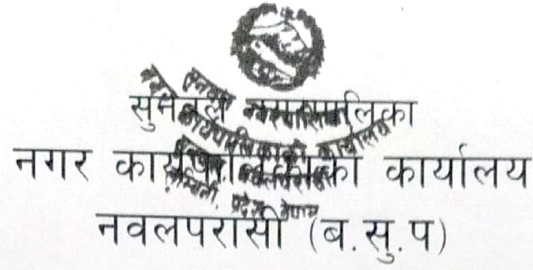 सुनवल नगरपालिका
नगर कार्यपालिकाको कार्यालय
नवलपरासी (ब.सु.प)